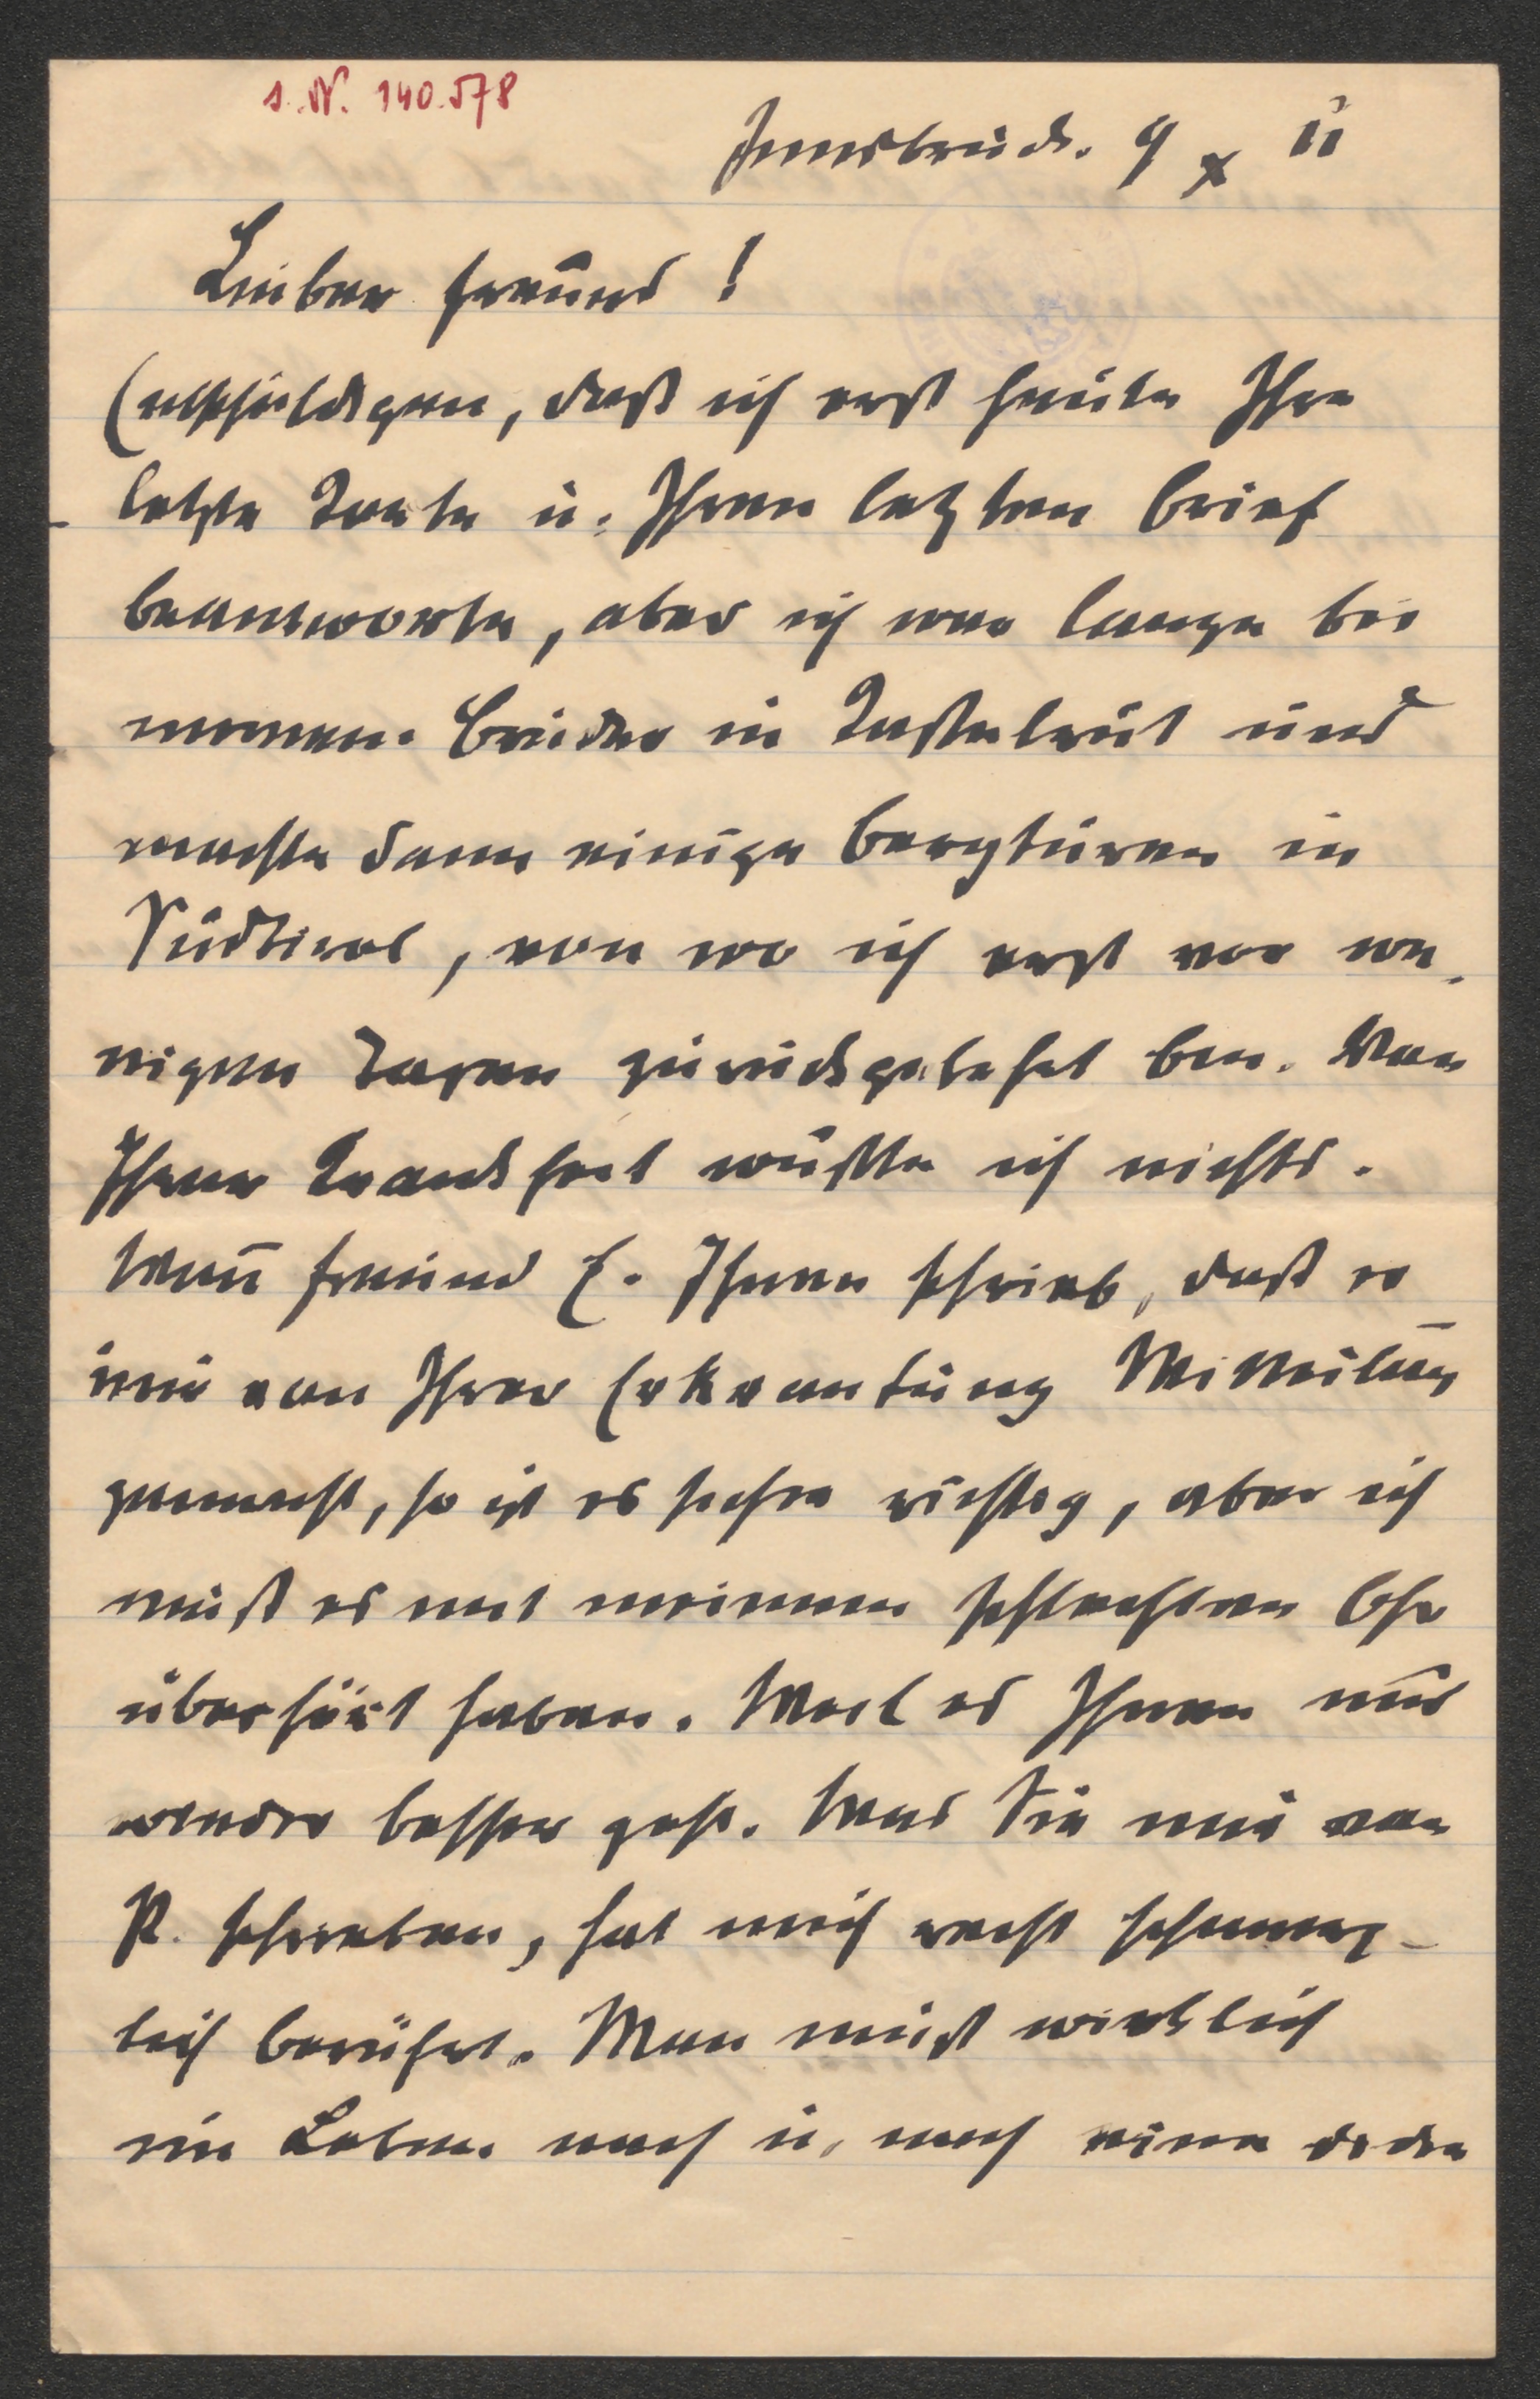 s. N. 140.578
Innsbruck. 9 X 11
Lieber Freund!
Entschuldigen, daß ich erst heute Ihre
letzte Karte u. Ihren letzten Brief
beantworte, aber ich war lange bei
meinem Bruder in Kastelrut und
machte dann einige Bergturen in
Südtirol, von wo ich erst vor we-
nigen Tagen zurückgekehrt bin. Von
Ihrer Krankheit wußte ich nichts.
Wenn Freund E. Ihnen schrieb, daß er
mir von Ihrer Erkrankung Mitteilung
gemacht, so ist es sicher richtig, aber ich
muß es mit meinem schlechten Ohr
überhört haben. Weil es Ihnen nur
wieder besser geht. Was Sie mir von
P. schrieben, hat mich recht schmerz-
lich berührt. Man muß wirklich
im Leben nach u. nach eine dicke